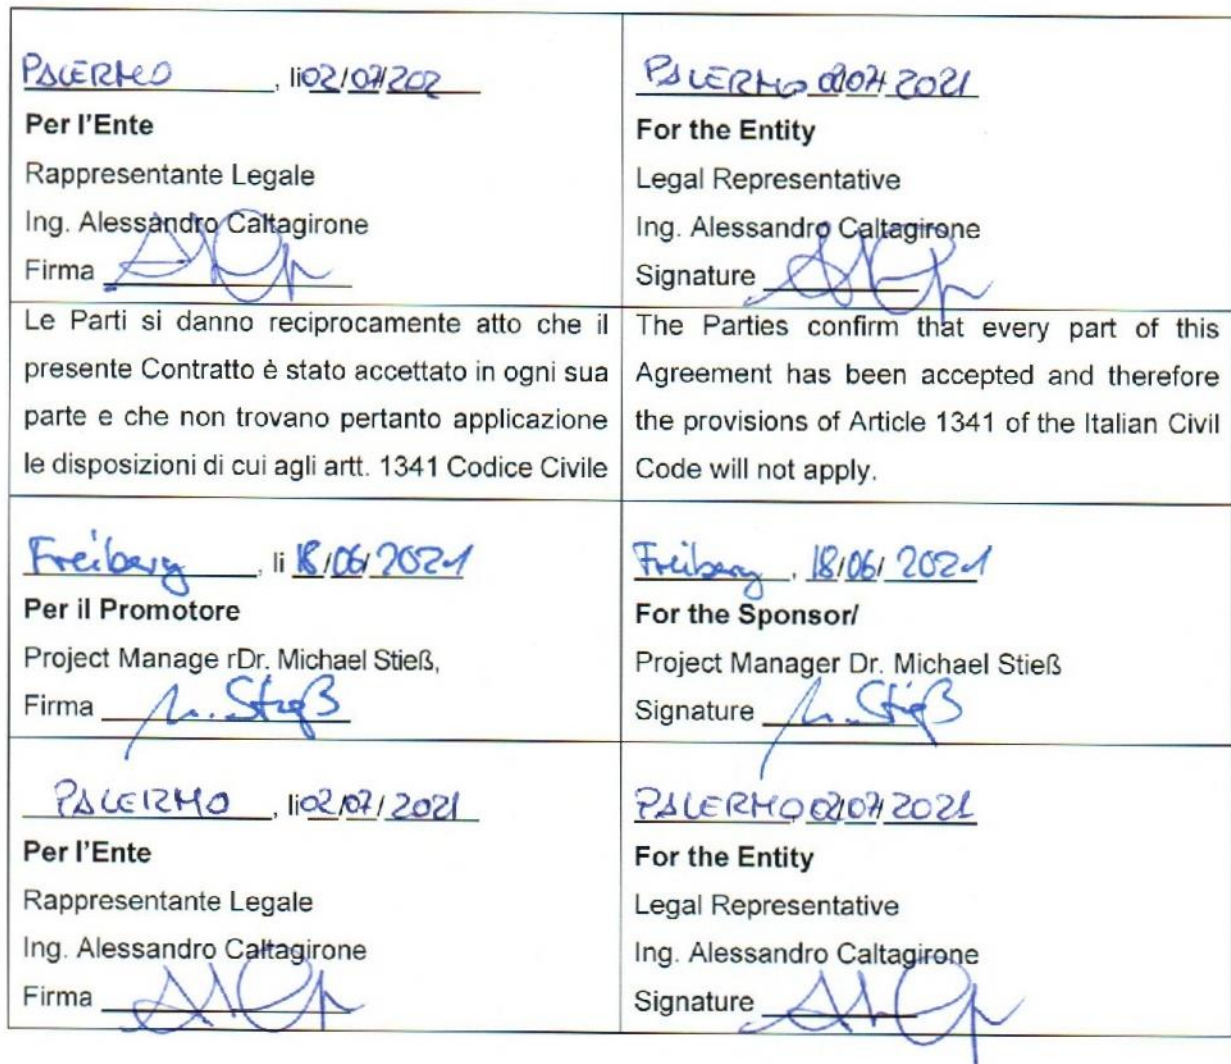 PALERMO, lì 02/07/202
Per l'Ente
Rappresentante Legale
Ing. Alessandro Caltagirone
Firma
Le Parti si danno reciprocamente atto che il
presente Contratto è stato accettato in ogni sua
parte e che non trovano pertanto applicazione
le disposizioni di cui agli artt. 1341 Codice Civile
Freiberg, li 18/06/2021
Per il Promotore
Project Manage rDr. Michael Stieß,
Firma M. Stieß
PALERMO, li 02/07/2021
Per l'Ente
Rappresentante Legale
Ing. Alessandro Caltagirone
Firma
PALERMO 02/07/2021
For the Entity
Legal Representative
Ing. Alessandro Caltagirone
Signature
The Parties confirm that every part of this
Agreement has been accepted and therefore
the provisions of Article 1341 of the Italian Civil
Code will not apply.
Freiberg, 18/06/2021
For the Sponsor/
Project Manager Dr. Michael Stieß
Signature M. Stieß
PALERMO 02/07/2021
For the Entity
Legal Representative
Ing. Alessandro Caltagirone
Signature